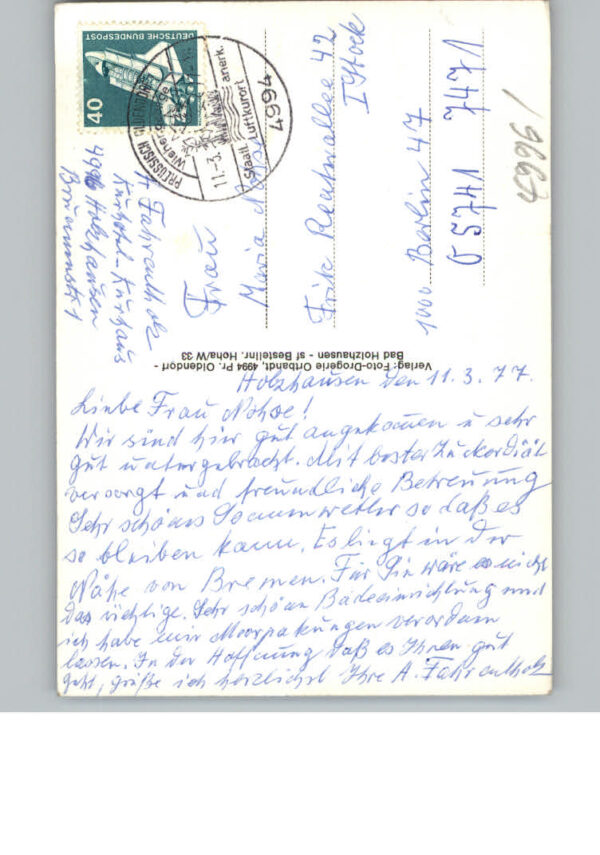 Holzhausen den 11.3.77.
Liebe Frau Nohse!
Wir sind hier gut angekommen u sehr
gut untergebracht. Mit bester Zuckerdiät
versorgt und freundliche Betreuung
Sehr schönes Sommerwetter so daß es
so bleiben kann. Es liegt in der
Nähe von Bremen. Für Sie wäre es nicht
das richtige. Sehr schöne Badeeinrichtung und
ich habe mir Moorpakungen verordnen
lassen. In der Hoffnung daß es Ihnen gut
geht, grüße ich herzlichst Ihre A. Fahrentholz
Verlag: Foto-Drogerie Ortbandt, 4994 Pr. Oldendorf -
Bad Holzhausen - sf Bestellnr. Hoha/W 33
A Fahrentholz
Kurhotel-Kurhaus
Holzhausen
Brunnenstr 1
DEUTSCHE BUNDESPOST
40
4994
PREUSSISCH OLDENDORF
11.-3.
Staatl. anerk.
Luftkurort
Frau
Maria
Fritz Reuterallee 42
I Stock
1000 Berlin 47
05741 7471